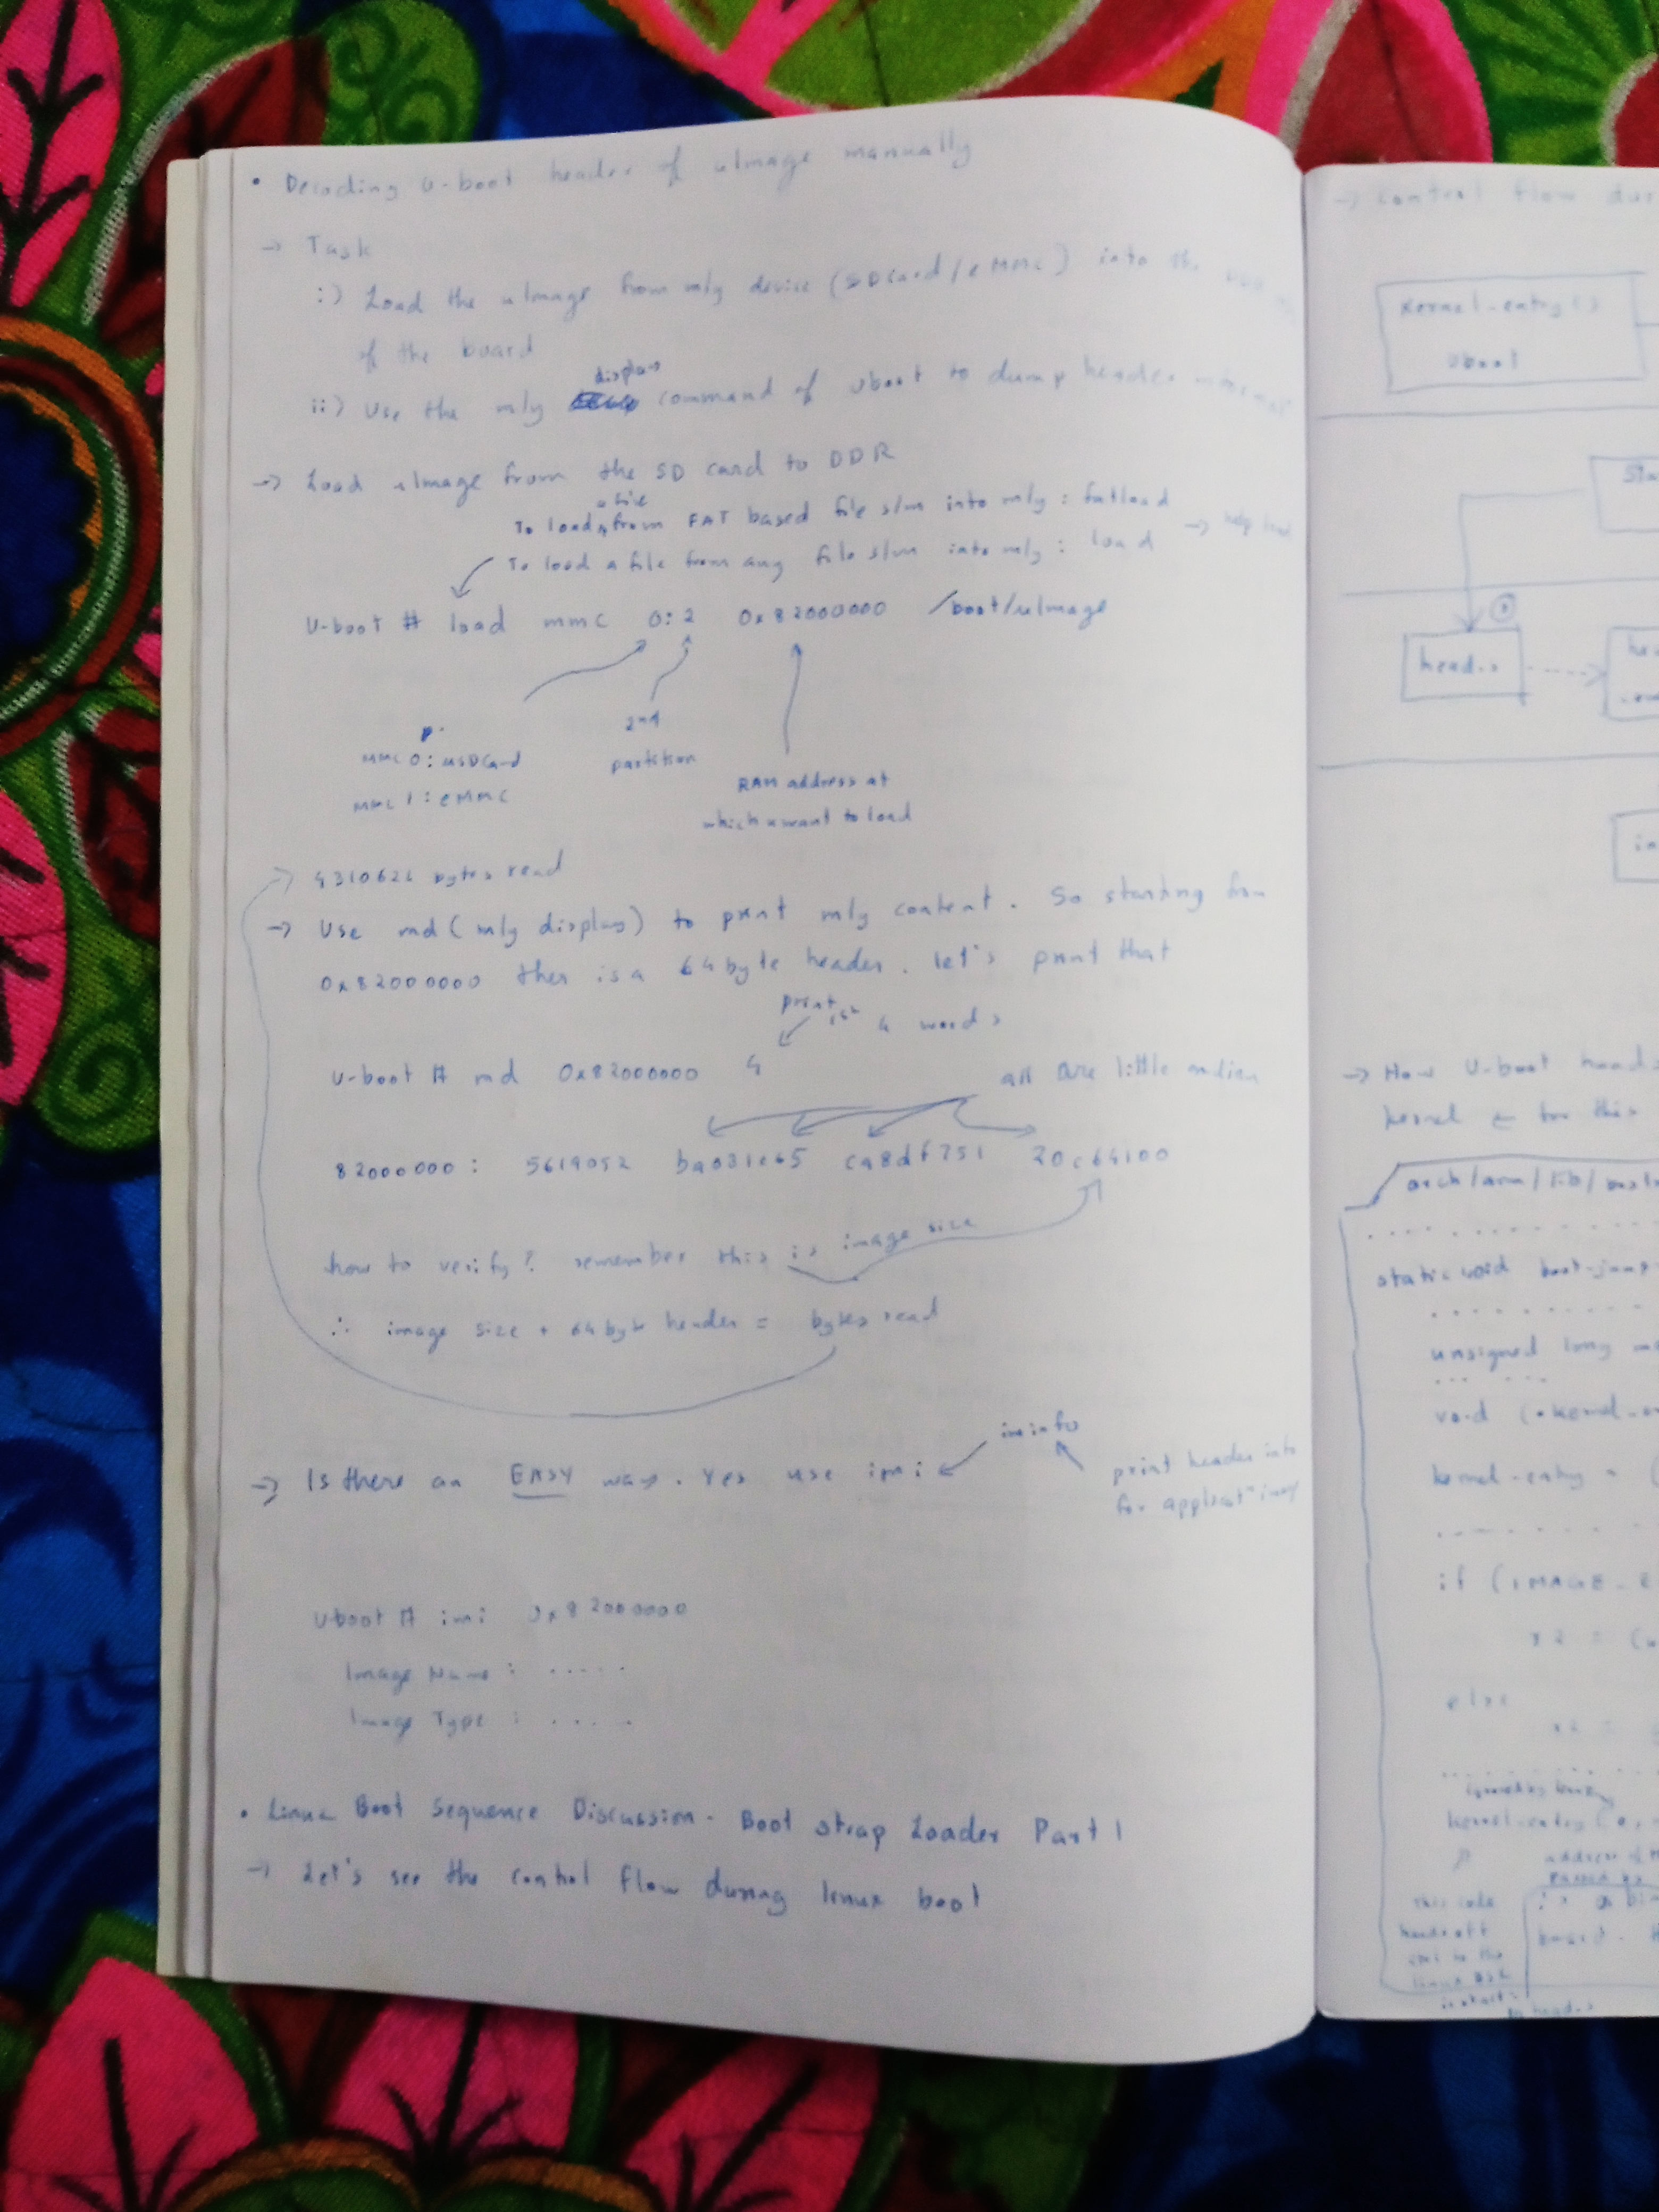 • Decoding U-boot header of uImage manually
→ Task
i) Load the uImage from m/y device (SDcard/eMMC) into the
of the board
ii) Use the m/y display command of Uboot to dump header
→ Load uImage from the SD card to DDR
To load a file from FAT based file s/m into m/y : fatload
To load a file from any file s/m into m/y : load → help load
U-boot # load mmc 0:2 0x82000000 /boot/uImage
MMC 0 : uSDCard
MMC 1 : eMMC
2nd
partition
RAM address at
which u want to load
bytes read
→ Use md (m/y display) to print m/y content. So starting from
0x82000000 ther is a 64 byte header. let's print that
print 1st 4 words
U-boot # md 0x82000000 4
all are little endian
82000000 : 56190527 ba031c65 ca8df751 20c64100
how to verify? remember this is image size
∴ image size + 64 byte header = bytes read
→ Is there an EASY way. Yes use imi
iminfo
print header info
for
Uboot # imi 0x82000000
Image Name : .....
Image Type : .....
• Linux Boot Sequence Discussion - Boot strap Loader Part 1
→ Let's see the control flow during linux boot
→ Control flow
Kernel-entry()
Uboot
head.s
→ How U-boot
kernel
arch/arm/lib/
static void boot-jump
unsigned long
void (*kernel-
kernel-entry = (
if (IMAGE_E
r2 = (
else
r2 =
kernel-entry(0,
address of
this code
linux